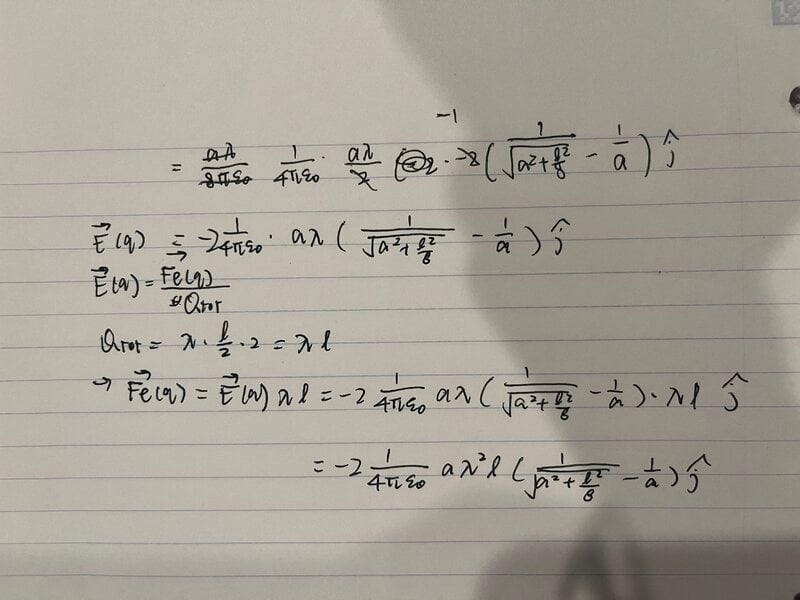 -1
= 1/(4πε₀) · aλ/2 · -8 ( 1/√(a² + l²/8) - 1/a ) ĵ
E⃗(q) = -2 1/(4πε₀) · aλ ( 1/√(a² + l²/8) - 1/a ) ĵ
E⃗(q) = F⃗e(q)/Qtot
Qtot = λ · l/2 · 2 = λl
→ F⃗e(q) = E⃗(q) λl = -2 1/(4πε₀) aλ ( 1/√(a² + l²/8) - 1/a ) · λl ĵ
= -2 1/(4πε₀) aλ²l ( 1/√(a² + l²/8) - 1/a ) ĵ